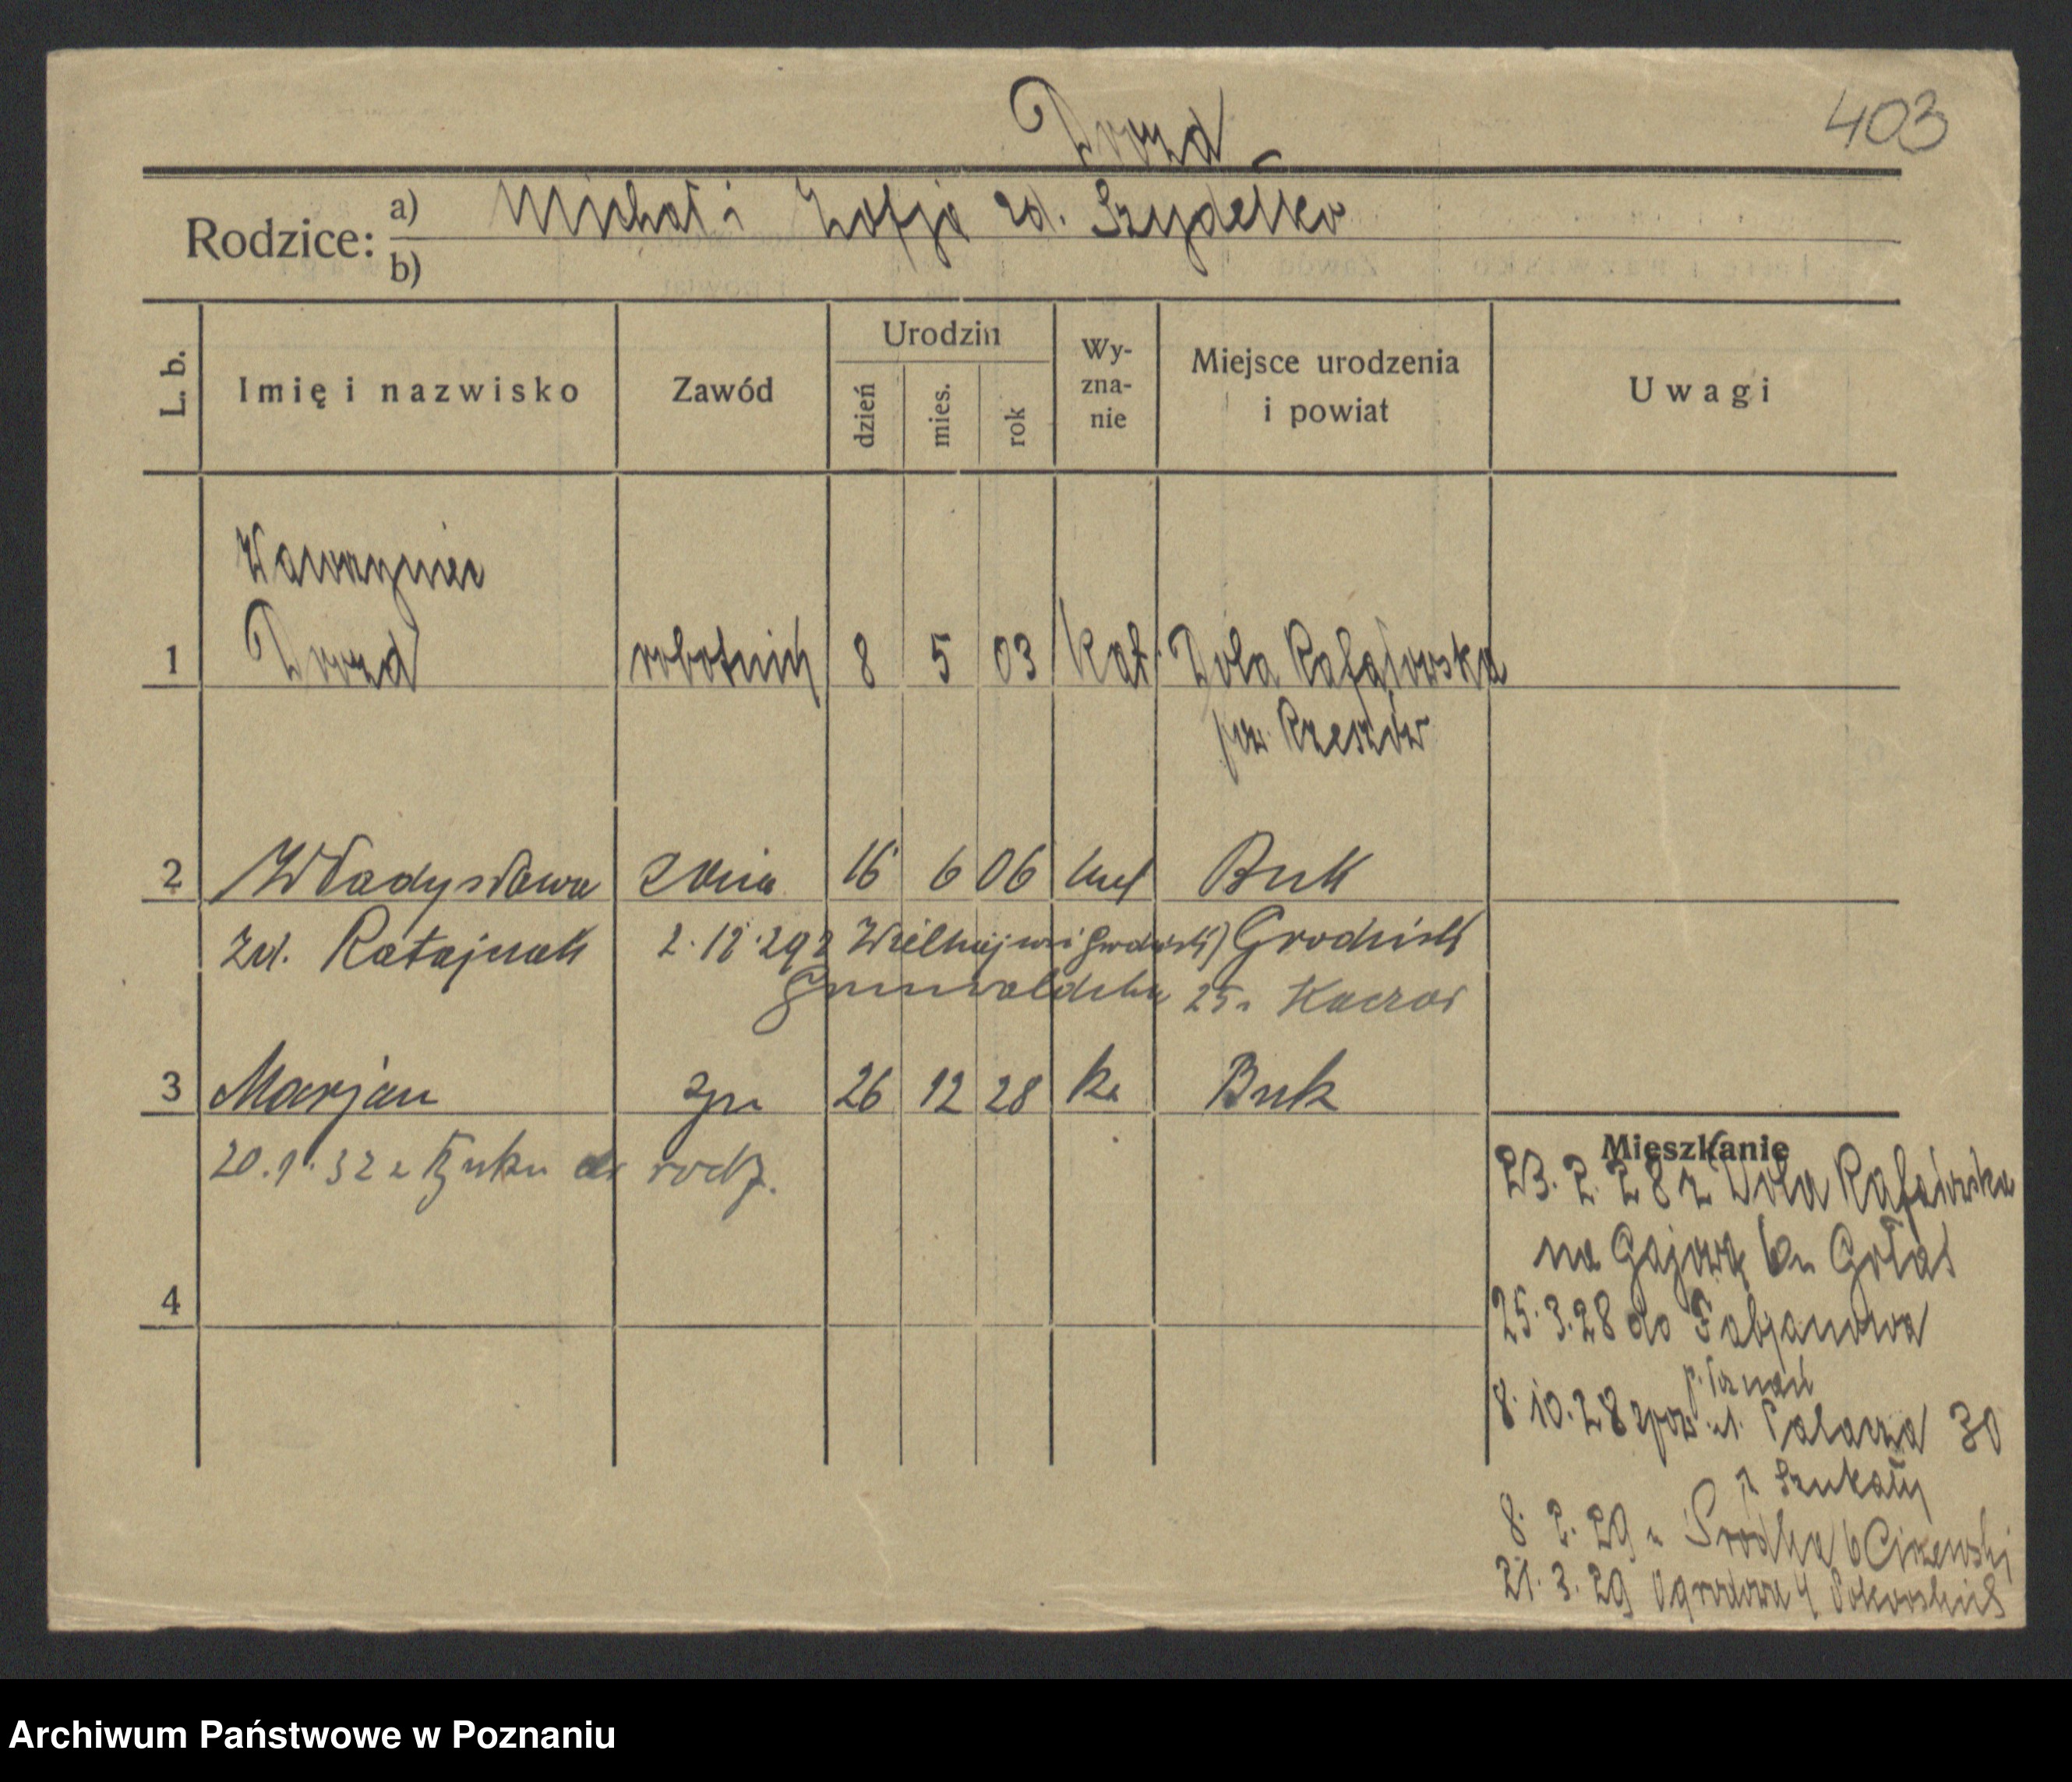 403
Drozd
Rodzice: a) Michał i Zofja zd. Szydełko
b)
L. b. Imię i nazwisko Zawód Urodzin dzień mies. rok Wyznanie Miejsce urodzenia i powiat Uwagi
Wawrzyniec
1 Drozd robotnik 8 5 03 kat. Wola Rafałowska
pow. Rzeszów
2 Władysława żona 16 6 06 kat Buk
zd. Ratajczak 2.12.29 z Wielkiejwsi Grodzisk
Grunwaldzka 25. Kaczor
3 Marjan syn 26 12 28 k. Buk
20.1.32 z Buku do rodz.
4
Mieszkanie
23. 2. 28 z Wola Rafałowska
na Gajową 6 Gołas
25.3.28 do Fabjanowa
p. Poznań
8.10.28 zpow. ul. Palacza 30
Szukały
8. 2. 29 Środka 6 Ciszewski
21. 3. 29 Ogrodowa 4
Archiwum Państwowe w Poznaniu